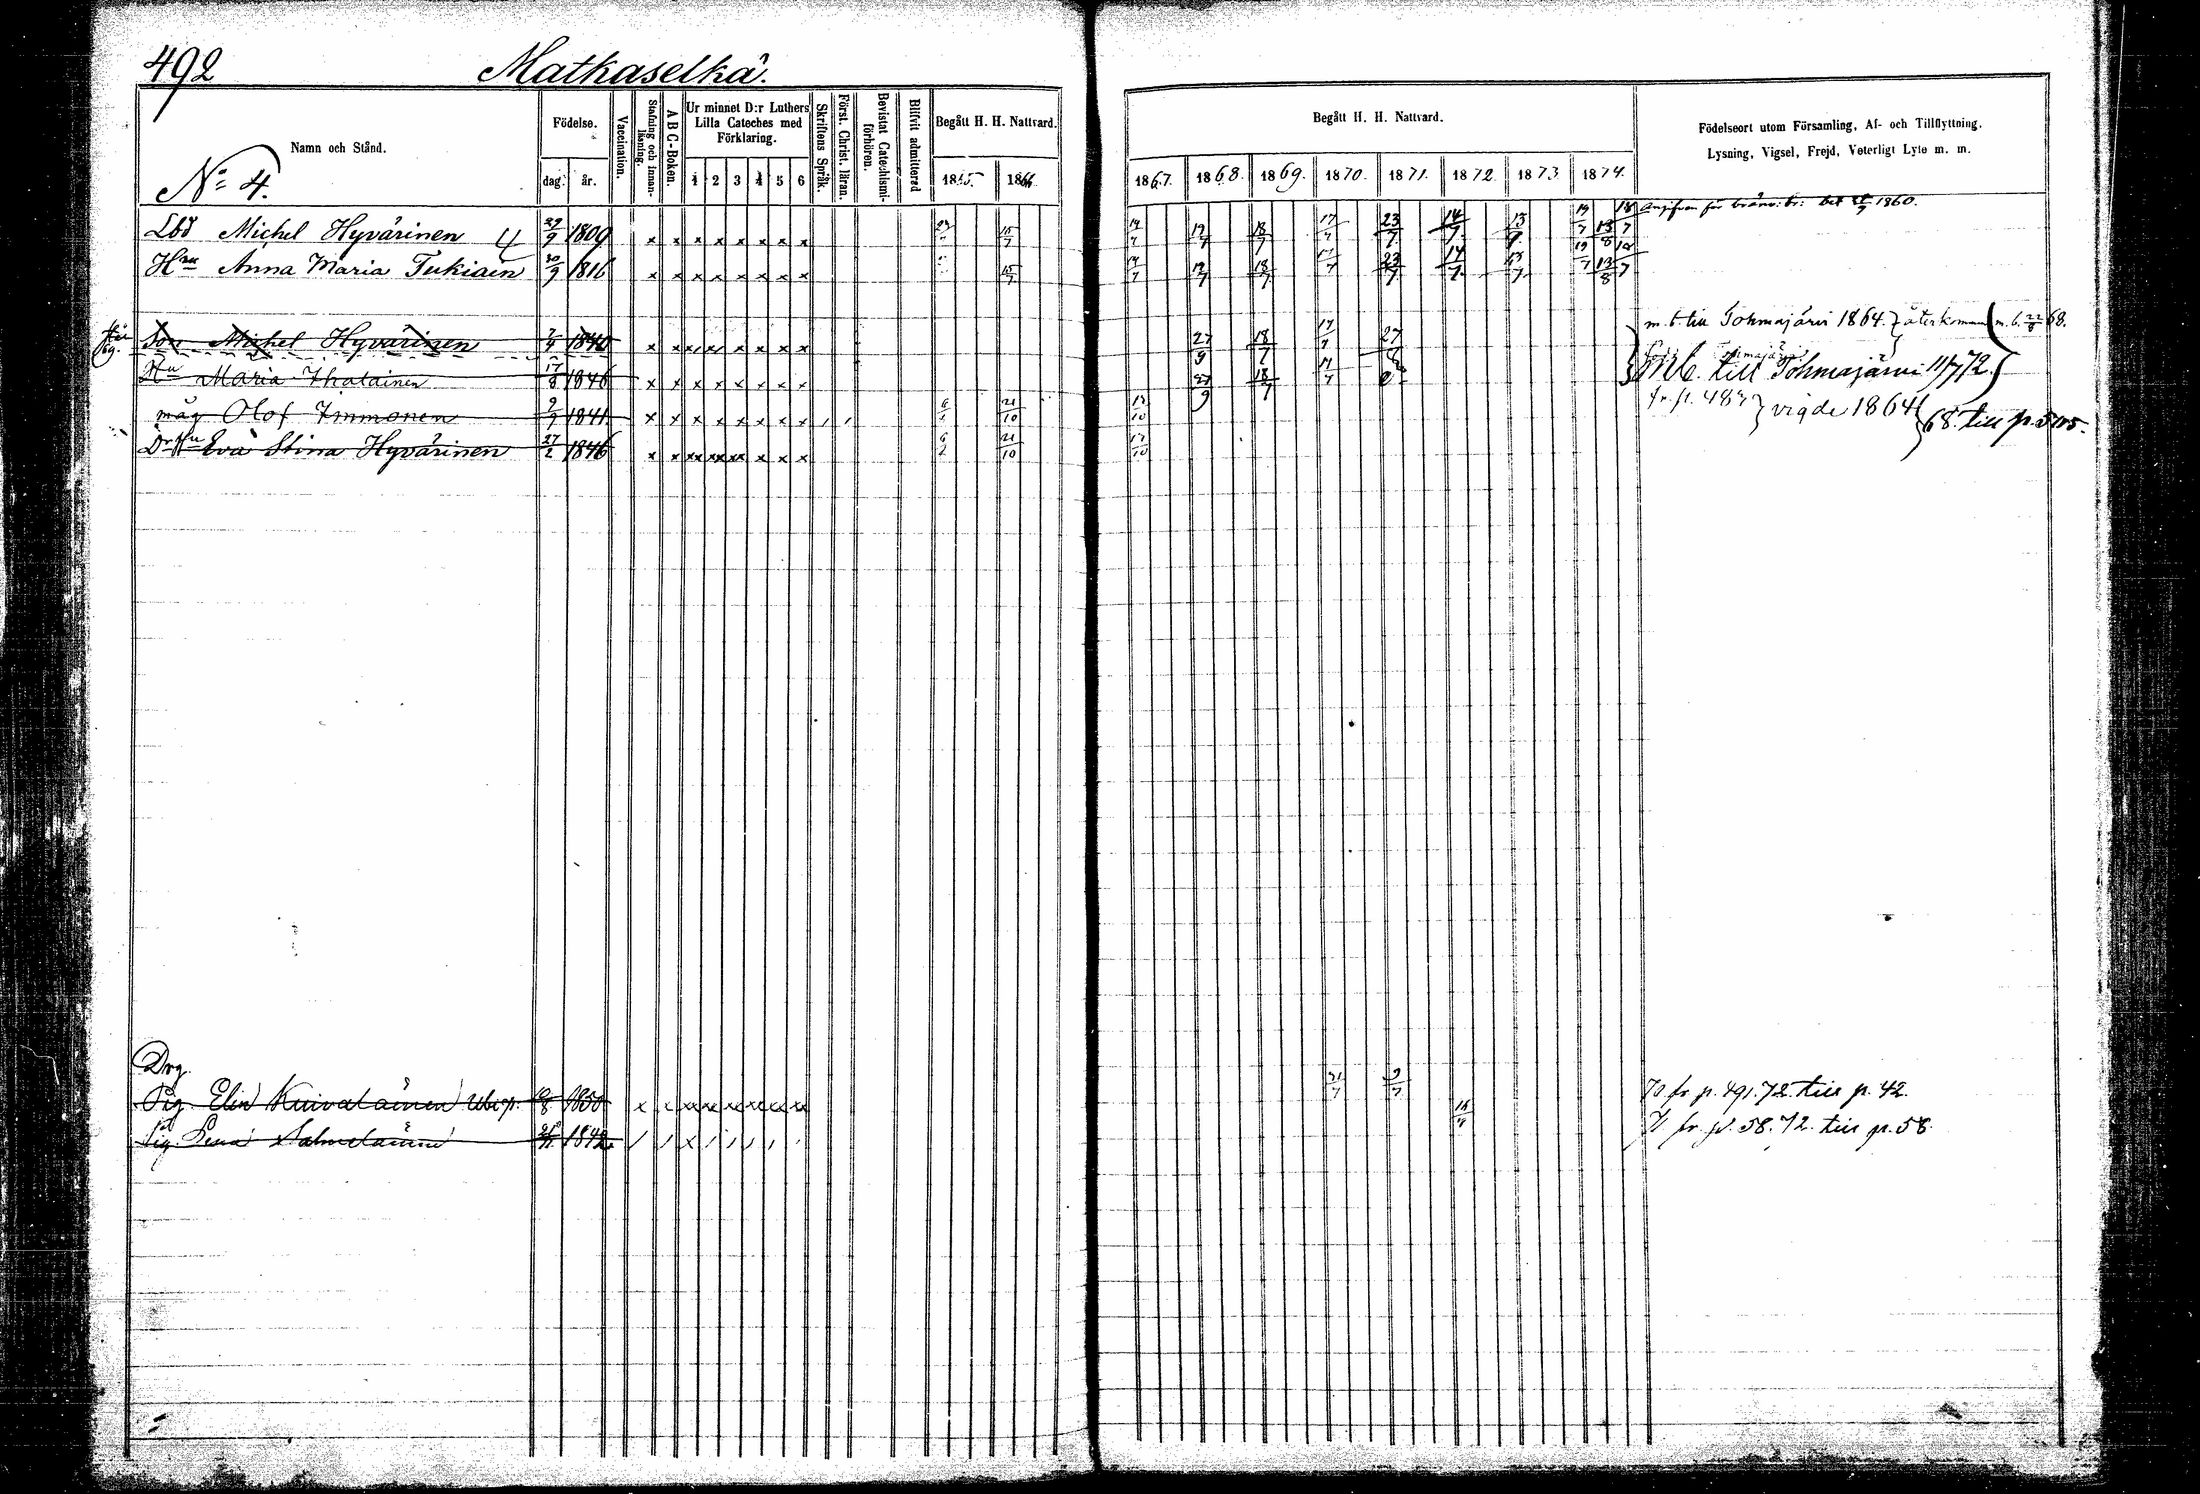 492 Matkaselkä.
Namn och Stånd.
Födelse.
dag. år.
Vaccination.
Stafning och innanläsning.
A B C-Boken.
Ur minnet D:r Luthers Lilla Cateches med Förklaring.
1 2 3 4 5 6
Skriftens Språk.
Först. Christ. läran.
Bevistat Catechismiförhören.
Blifvit admitterad
Begått H. H. Nattvard.
1865. 1866
Begått H. H. Nattvard.
1867. 1868. 1869. 1870. 1871. 1872. 1873. 1874.
Födelseort utom Församling, Af- och Tillflyttning,
Lysning, Vigsel, Frejd, Veterligt Lyte m. m.
No 4.
Lbd Michel Hyvärinen 4 29/9 1809 x x x x x x x x 15/7 19/7 18/7 17/7 23/7 14/7 13/7 19/7 13/8 18/7 1860.
Hru Anna Maria Tukiain 30/9 1816 x x x x x x x x 15/7 19/7 18/7 17/7 23/7 14/7 13/7 19/7 13/8 18/7
Son Michel Hyvärinen 1840 x x x x x x x x 27/9 18/7 17/7 27/8 m. b. till Tohmajärvi 1864. återkommu m. b. 22/8 68.
Hu Maria Ihatainen 17/8 1846 x x x x x x x x 27/9 18/7 17/7 m b. till Tohmajärvi 11/7 72.
måg Olof Immonen 9/9 1841. x x x x x x x x 21/10 13/10 vigde 1864 68. till p. 505.
Dr Hu Eva Stina Hyvärinen 27/2 1846 x x xx xx xx x x x 6/2 21/10 13/10
Drg.
Pig. Elin Kuivalainen 1850 x x xx xx xx xx xx xx 31/7 9/7 70 fr p. 491. 72. till p. 42.
Pig. Lena Salmelainen 1842 16/7 71 fr. p. 58. 72. till p. 58.